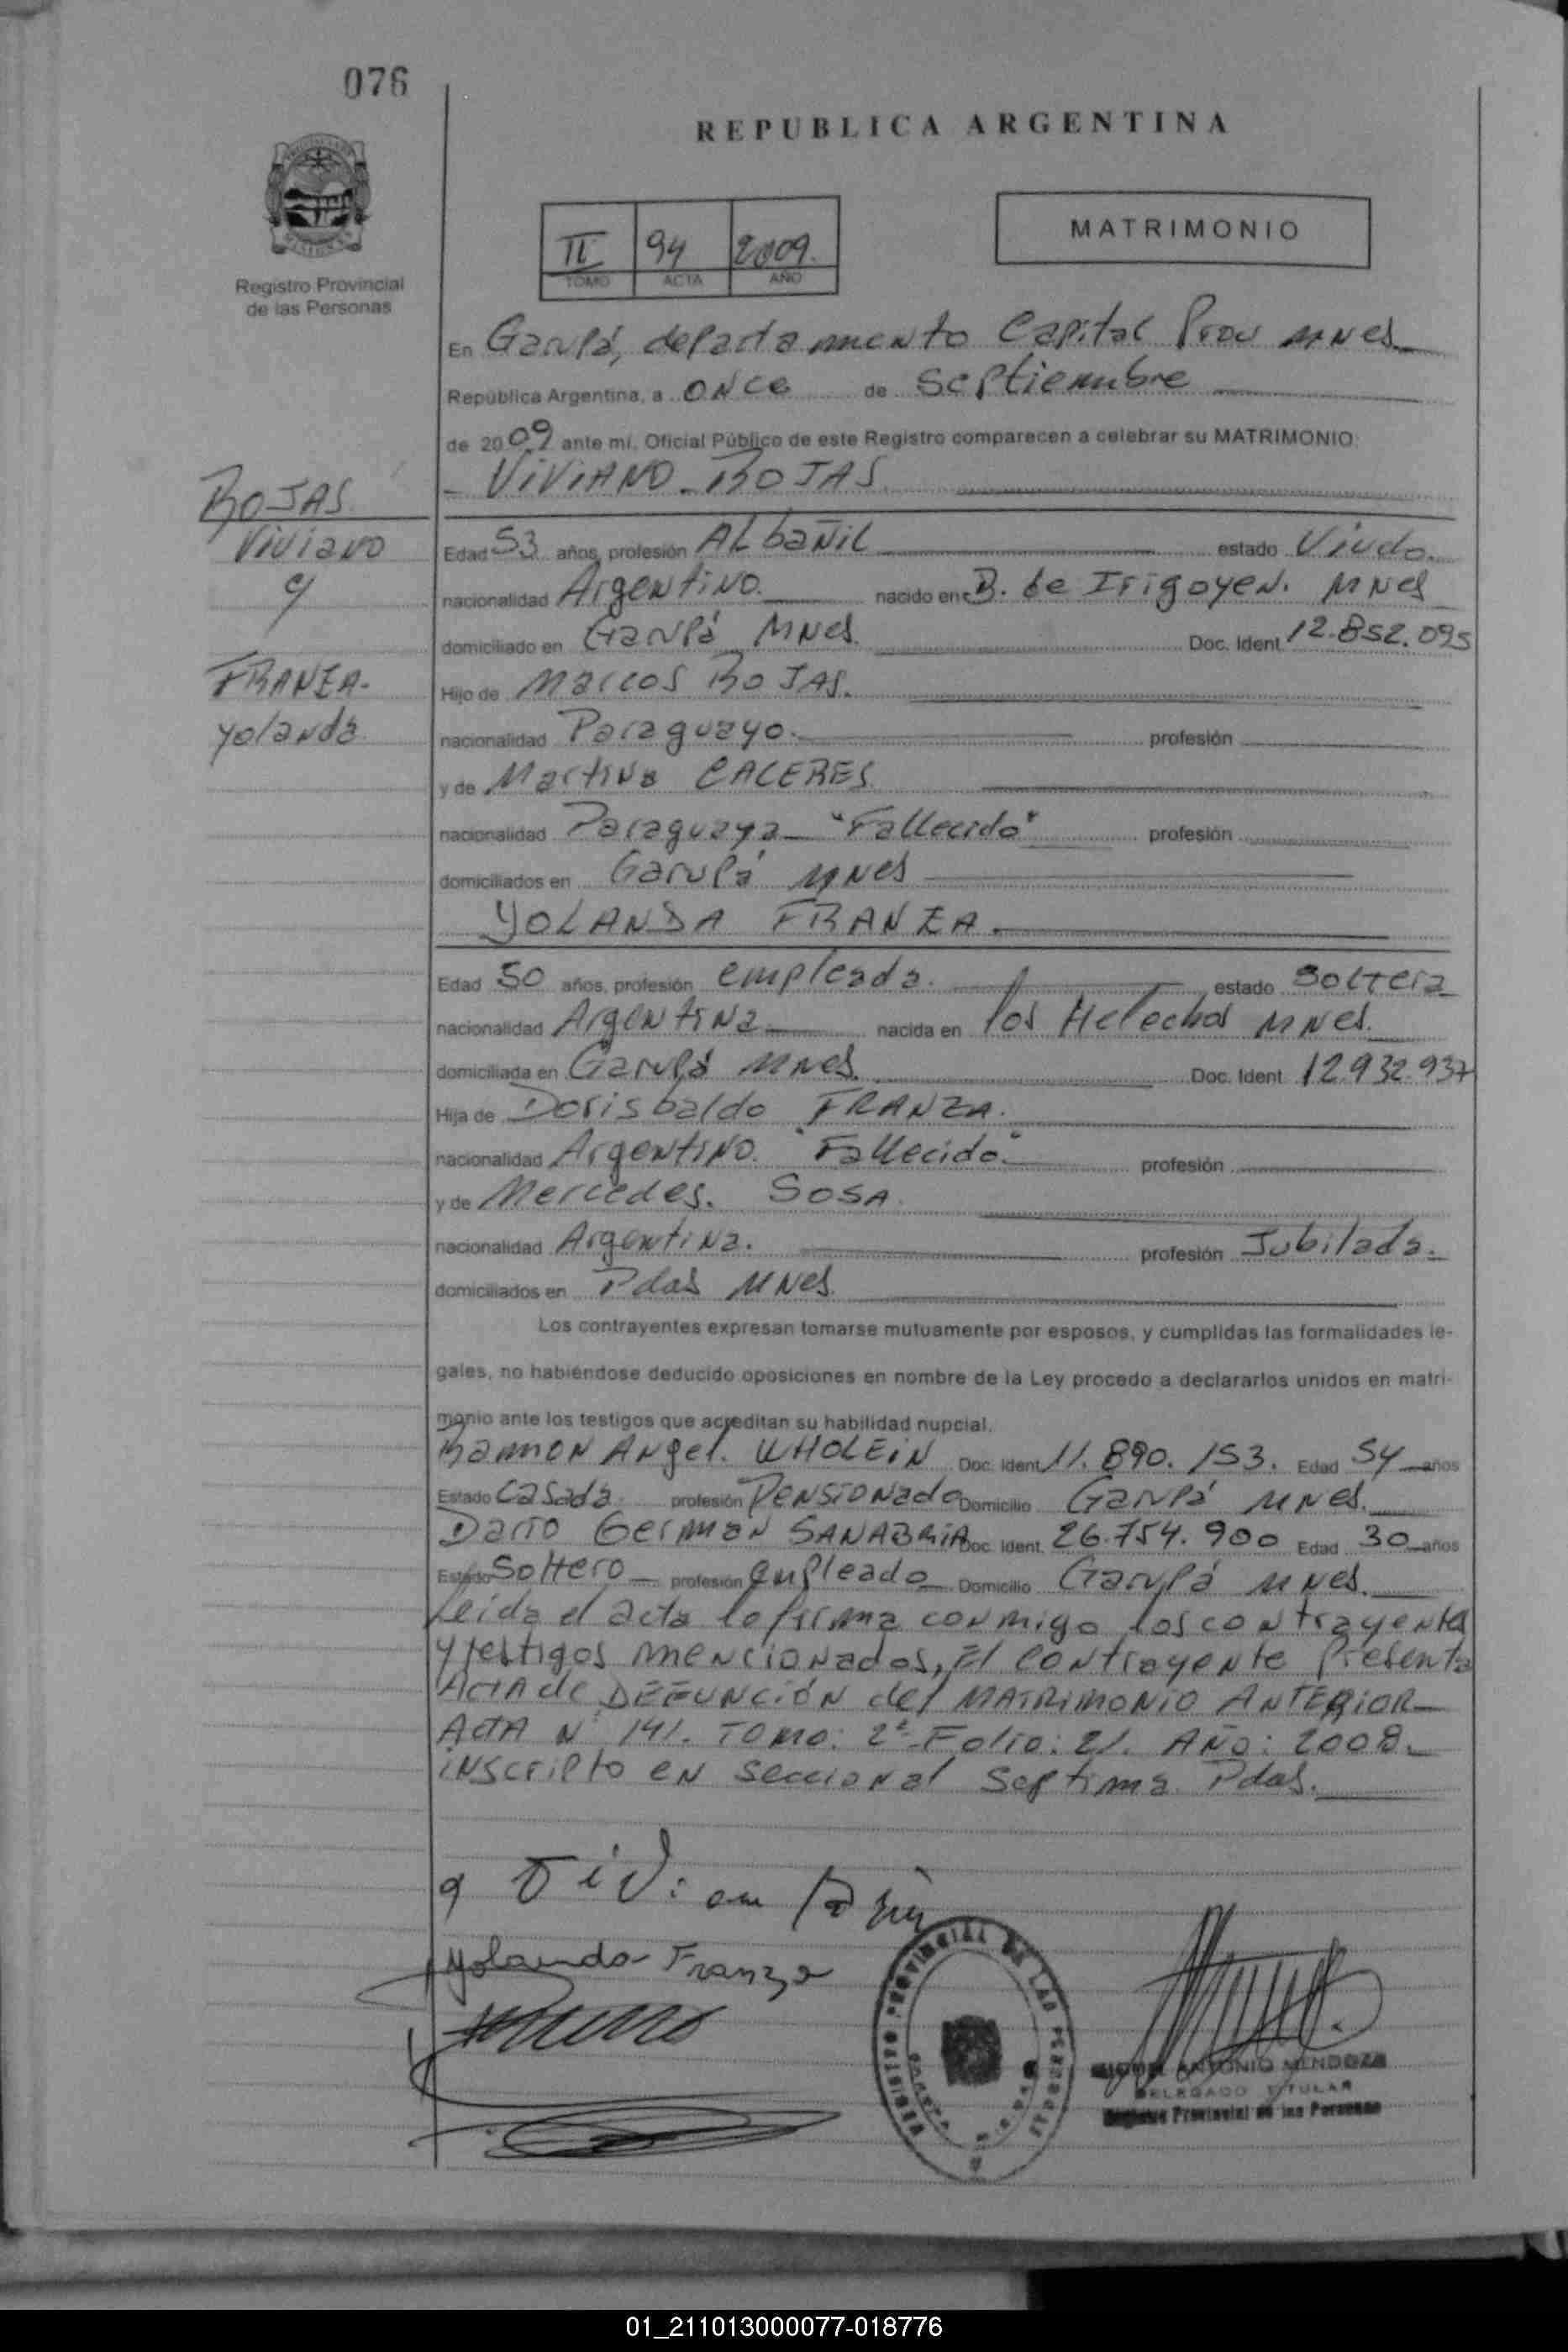 076
REPUBLICA ARGENTINA
II 94 2009.
TOMO ACTA AÑO
MATRIMONIO
Registro Provincial
de las Personas
En Garupá, departamento Capital Prov MNes
República Argentina, a once de Septiembre
de 2009 ante mí, Oficial Público de este Registro comparecen a celebrar su MATRIMONIO:
VIVIANO ROJAS
ROJAS
Viviano
c/
FRANZA.
Yolanda
Edad 53 años, profesión ALbañil estado Viudo.
nacionalidad Argentino. nacido en B. de Irigoyen. MNes
domiciliado en Garupá MNes. Doc. Ident. 12.852.095
Hijo de Marcos ROJAS.
nacionalidad Paraguayo. profesión
y de Martina CACERES.
nacionalidad Paraguaya "Fallecido" profesión
domiciliados en Garupá MNes
YOLANDA FRANZA.
Edad 50 años, profesión empleada. estado Soltera
nacionalidad Argentina nacida en los Helechos MNes.
domiciliada en Garupá MNes. Doc. Ident. 12.932.937
Hija de Dorisbaldo FRANZA.
nacionalidad Argentino. "Fallecido" profesión
y de Mercedes. SOSA.
nacionalidad Argentina. profesión Jubilada.
domiciliados en Pdas MNes.
Los contrayentes expresan tomarse mutuamente por esposos, y cumplidas las formalidades le-
gales, no habiéndose deducido oposiciones en nombre de la Ley procedo a declararlos unidos en matri-
monio ante los testigos que acreditan su habilidad nupcial.
Ramon Angel. WHOLEIN Doc. Ident. 11.890.153. Edad 54 años
Estado Casada profesión Pensionado Domicilio Garupá MNes.
Dario German SANABRIA Doc. Ident. 26.754.900 Edad 30 años
Estado Soltero profesión empleado Domicilio Garupá MNes.
Leida el acta la firma conmigo los contrayentes
y testigos mencionados, El contrayente Presenta
ACTA de DEFUNCIÓN del MATRIMONIO ANTERIOR
ACTA Nº 141. TOMO: 2º Folio: 21. AÑO: 2008.
inscripto en seccional Septima Pdas.
Yolanda Franza
REGISTRO PROVINCIAL DE LAS PERSONAS
ANTONIO MENDOZA
DELEGADO TITULAR
Registro Provincial de las Personas
01_211013000077-018776